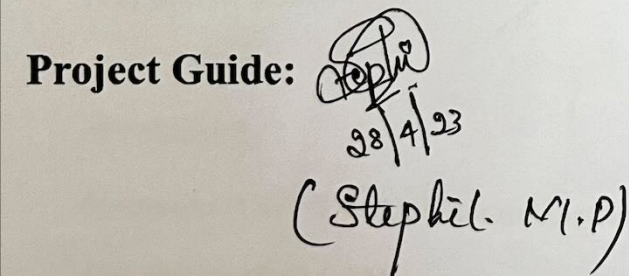 Project Guide: Stephi
28/4/23
(Stephil. M.P)